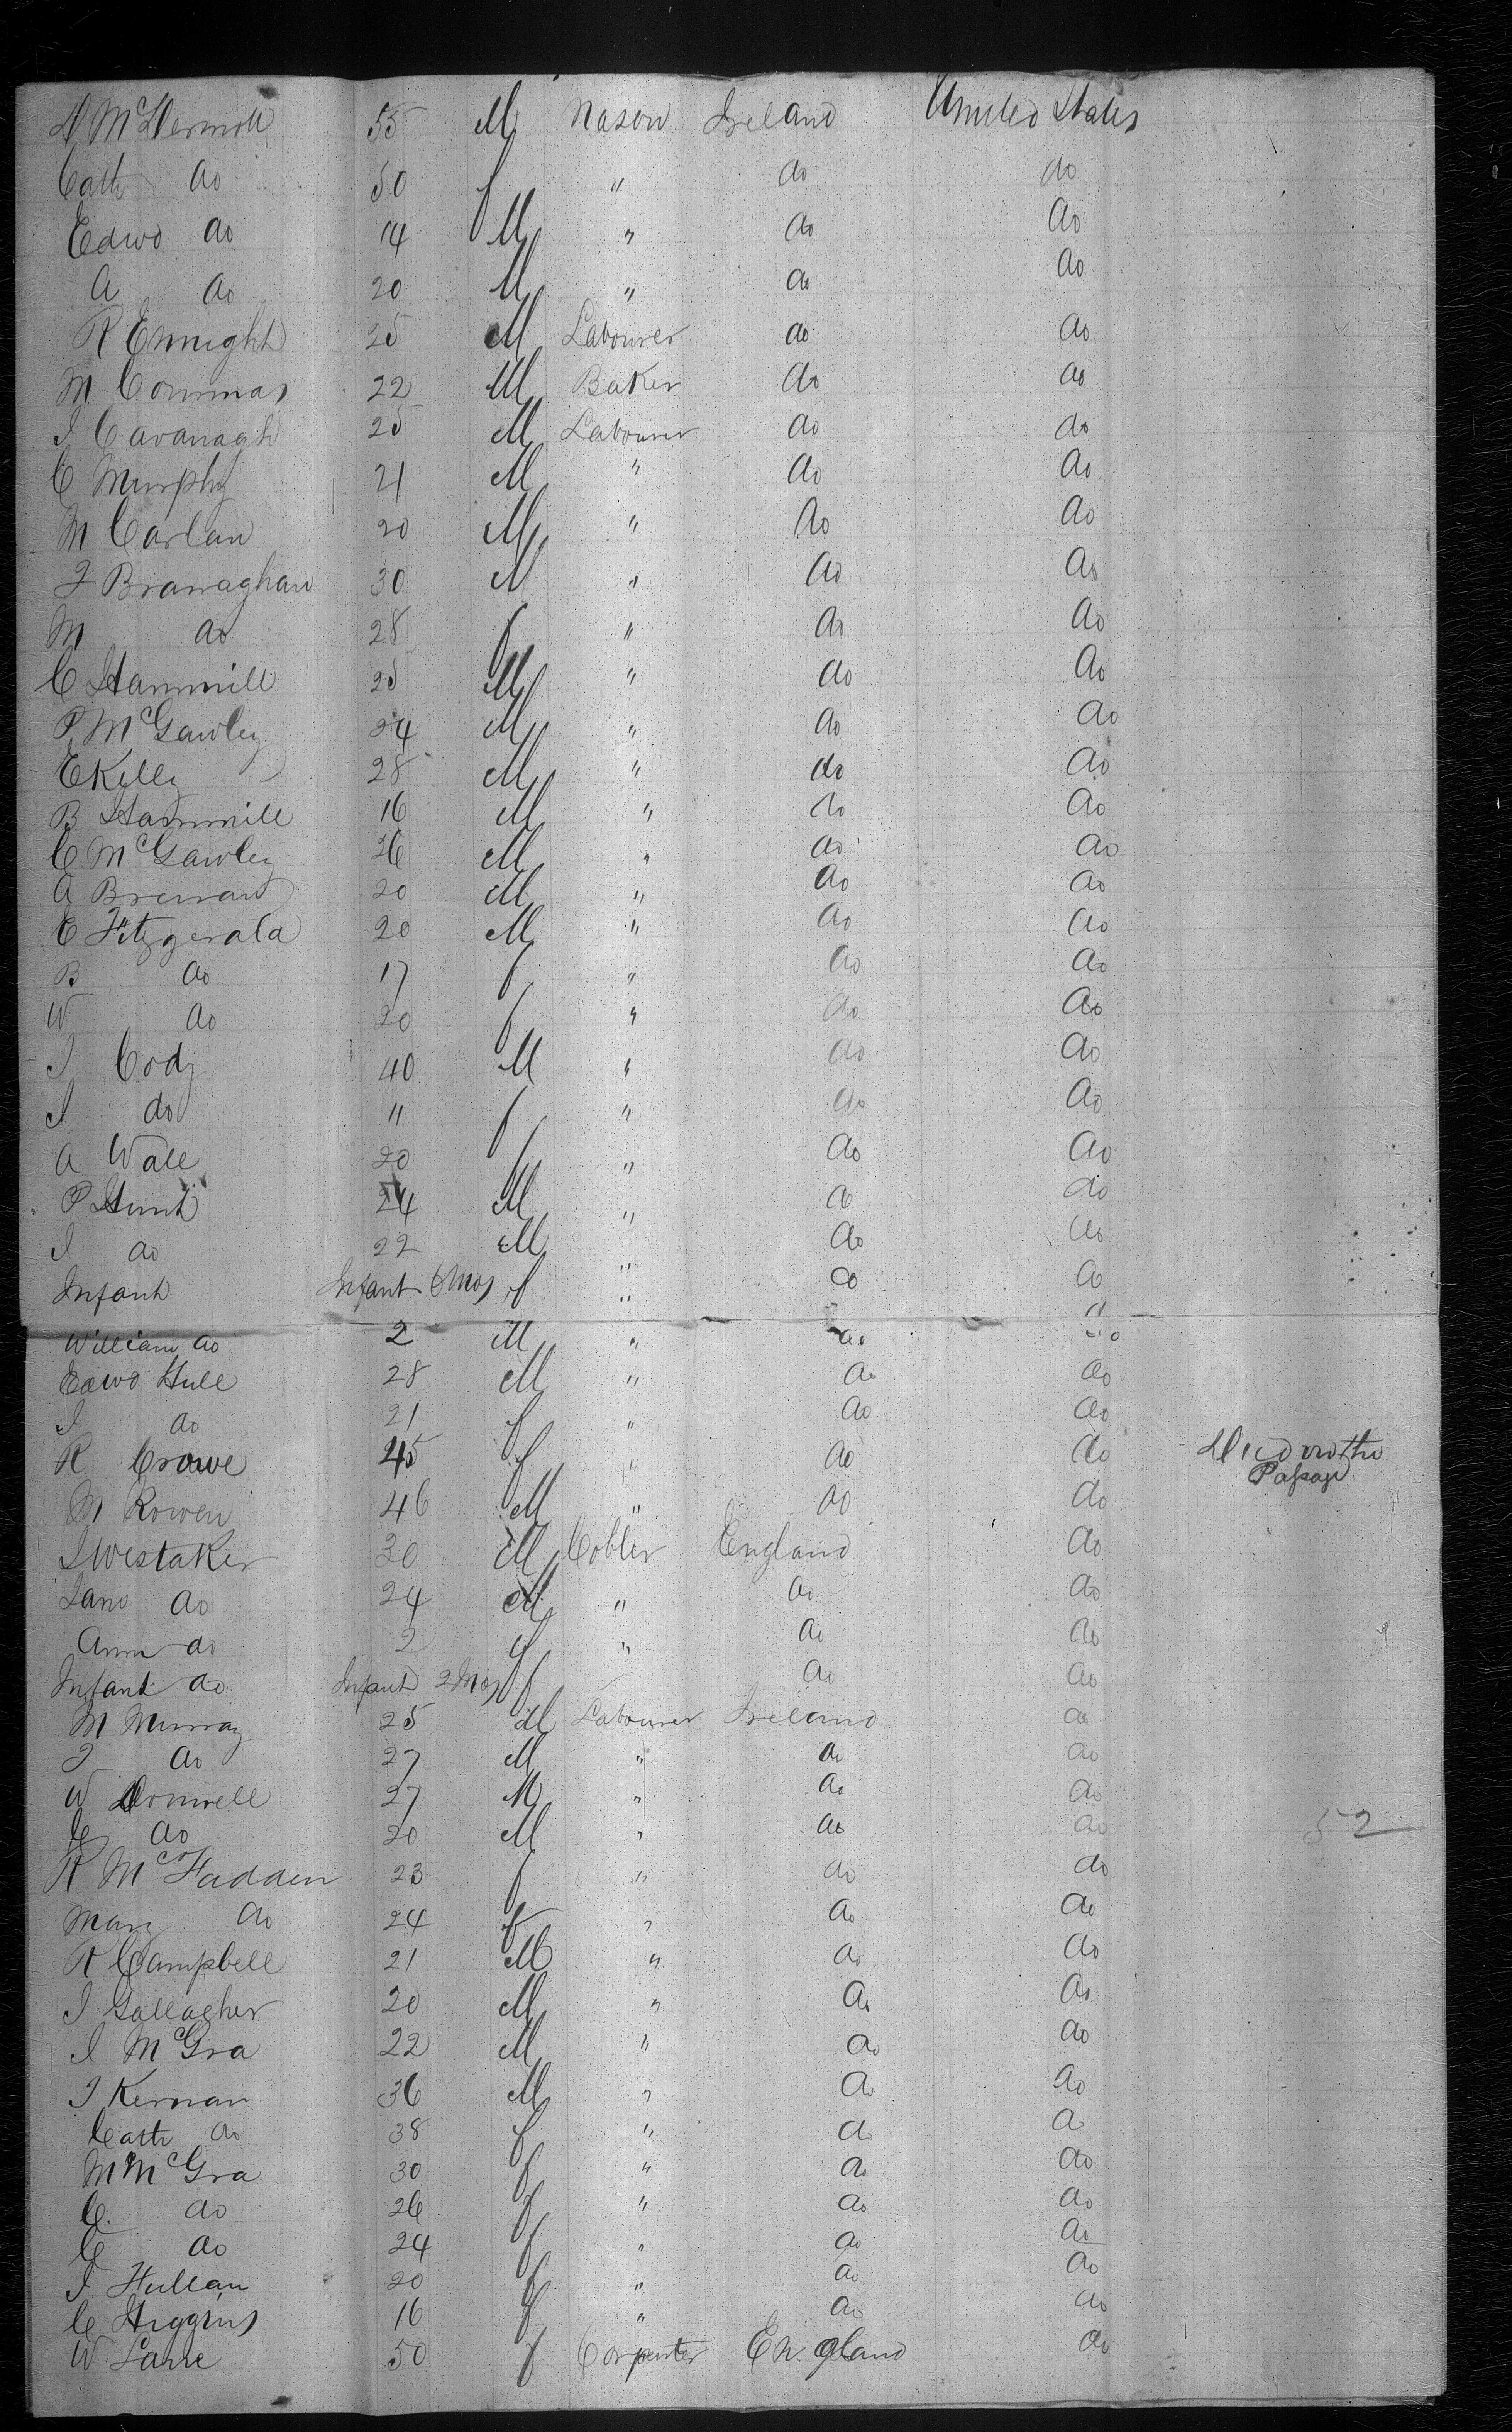 D McDermott 55 M Mason Ireland United States
Cath do 50 f " do do
Edwd do 14 M " do do
A do 20 M " do do
R Enright 25 M Labourer do do
M Commas 22 M Baker do do
J Cavanagh 25 M Labourer do do
C Murphy 21 M " do do
M Carlan 20 M " do do
J Branaghan 30 M " do do
M do 28 f " do do
C Hammill 25 M " do do
P McGawley 24 M " do do
E Kelly 28 M " do do
B Hammill 16 M " do do
C McGawley 36 M " do do
A Brennan 20 M " do do
C Fitzgerald 20 M " do do
B do 17 f " do do
W do 20 f " do do
J Cody 40 M " do do
J do 11 f " do do
A Wall 20 f " do do
P Hunt 24 M " do do
J do 22 M " do do
Infant Infant 6 Mos f " do do
William do 2 M " do do
Edwd Hull 28 M " do do
J do 21 f " do do
R Crowe 45 f " do do Died on the Passage
M Rowen 46 M " do do
J Westaker 30 M Cobler England do
Jane do 24 M " do do
Ann do 2 f " do do
Infant do Infant 2 Mos f do do
M Murray 25 M Labourer Ireland do
J do 27 M " do do
W Donnell 27 M " do do
C do 20 M " do do 52
R McFadden 23 f " do do
Mary do 24 f " do do
R Campbell 21 M " do do
J Gallagher 20 M " do do
J McGra 22 M " do do
J Kernan 36 M " do do
Cath do 38 f " do do
M McGra 30 f " do do
C. do 26 f " do do
C do 24 f " do do
J Hullan 20 f " do do
C Higgins 16 f " do do
W Lane 50 f Carpenter England do